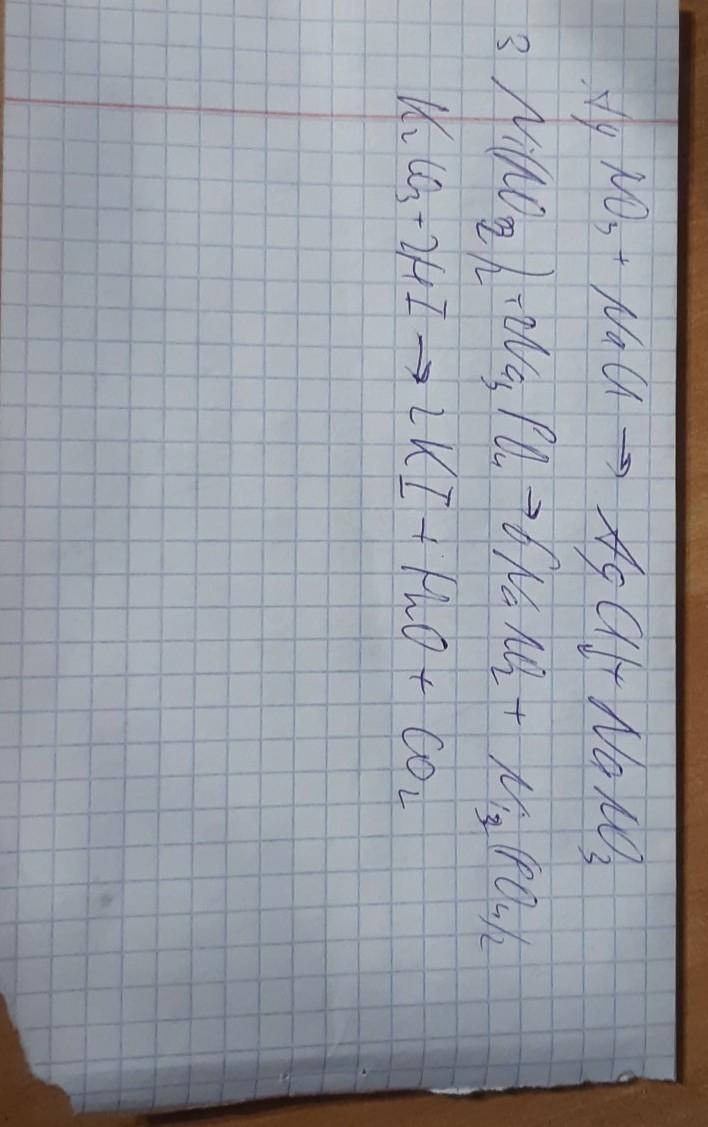 AgNO₃ + NaCl → AgCl↓ + NaNO₃
3 Ni(NO₂)₂ + 2Na₃PO₄ → 6NaNO₂ + Ni₃(PO₄)₂
K₂CO₃ + 2HI → 2KI + H₂O + CO₂